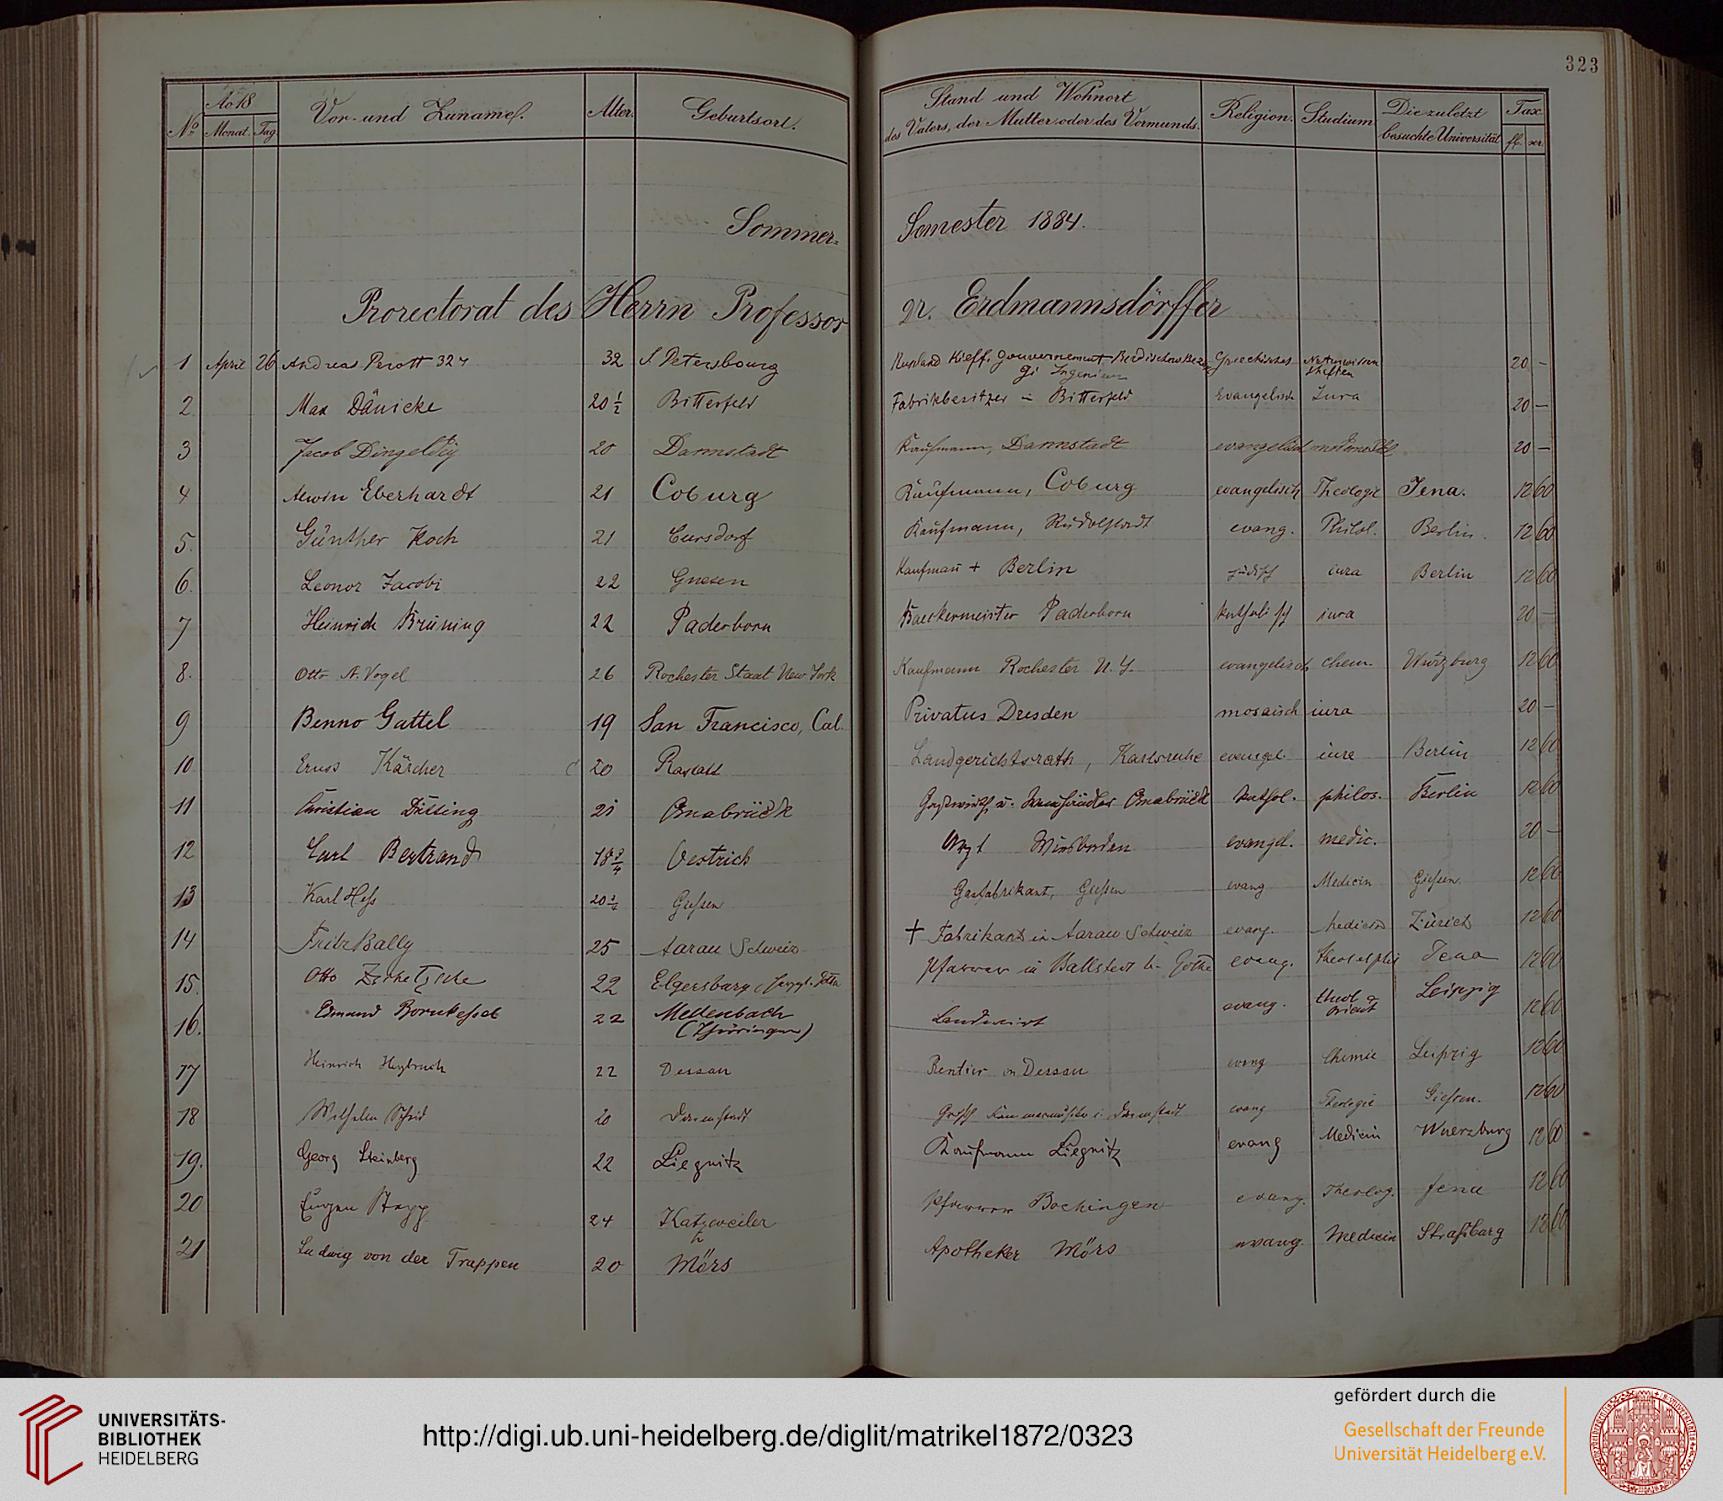 323
No. Ao 18 Monat. Tag Vor- und Zuname. Alter. Geburtsort. Stand und Wohnort des Vaters, der Mutter oder des Vormunds. Religion. Studium Die zuletzt besuchte Universität Tax fl. xr.
Sommer- Semester 1884.
Prorectorat des Herrn Professor Dr. Erdmannsdörffer
1 April 26 Andreas 32 S. Petersbourg Russland Kieff. Gouvernement 20 —
2. Max Dänicke 20 1/2 Bitterfeld Fabrikbesitzer – Bitterfeld Evangelisch Jura 20 —
3 Jacob Dingeldey 20 Darmstadt Kaufmann, Darmstadt evangelisch 20 —
4 Alwin Eberhardt 21 Coburg Kaufmann, Coburg evangelisch Theologie Jena. 12 60
5. Günther Koch 21 Cursdorf Kaufmann, Rudolstadt evang. Philol. Berlin. 12 60
6. Leonor Jacobi 22 Gnesen Kaufmañ + Berlin jüdisch iura Berlin 12 60
7 Heinrich Brüning 22 Paderborn Baeckermeister Paderborn katholisch iura 20 —
8. Otto A. Vogel 26 Rochester Staat New York Kaufmann Rochester N.Y. evangelisch chem. Würzburg 12 60
9 Benno Gattel 19 San Francisco, Cal. Privatus Dresden mosaisch iura 20 —
10 Ernst Kärcher 20 Rastatt Landgerichtsrath, Karlsruhe evangel. iura Berlin 12 60
11 Christian 21 Osnabrück Gastwirth u. Osnabrück kathol. philos. Berlin 12 60
12 Carl Bertrand 18 3/4 Oestrich Arzt Wiesbaden evangel. medic. 20 —
13 Karl Hess 20 Giessen Giessen evang Medicin Giessen. 12 60
14 Fritz Bally 25 Aarau Schweiz + Fabrikant in Aarau Schweiz evang. Medicin Zürich 12 60
15. Otto 22 Elgersburg Pfarrer in Ballstedt b. Gotha evang. Jena 12 60
16. Edmund Bornkessel 22 Mellenbach (Thüringen) Landwirt evang. theol. u. orient Leipzig 12 60
17 Heinrich Heybruch 22 Dessau Rentier in Dessau evang Chemie Leipzig 12 60
18 Wilhelm 20 Darmstadt Darmstadt evang Theologie Giessen. 12 60
19. Georg Steinberg 22 Liegnitz Kaufmann Liegnitz evang Medicin Wuerzburg 12 60
20 Eugen 24 Katzweiler Pfarrer Bochingen evang. Theolog. Jena 12 60
21 Ludwig von der Trappen 20 Mörs Apotheker Mörs evang. Medicin Straßburg 12 60
UNIVERSITÄTS-
BIBLIOTHEK
HEIDELBERG
http://digi.ub.uni-heidelberg.de/diglit/matrikel1872/0323
gefördert durch die
Gesellschaft der Freunde
Universität Heidelberg e.V.